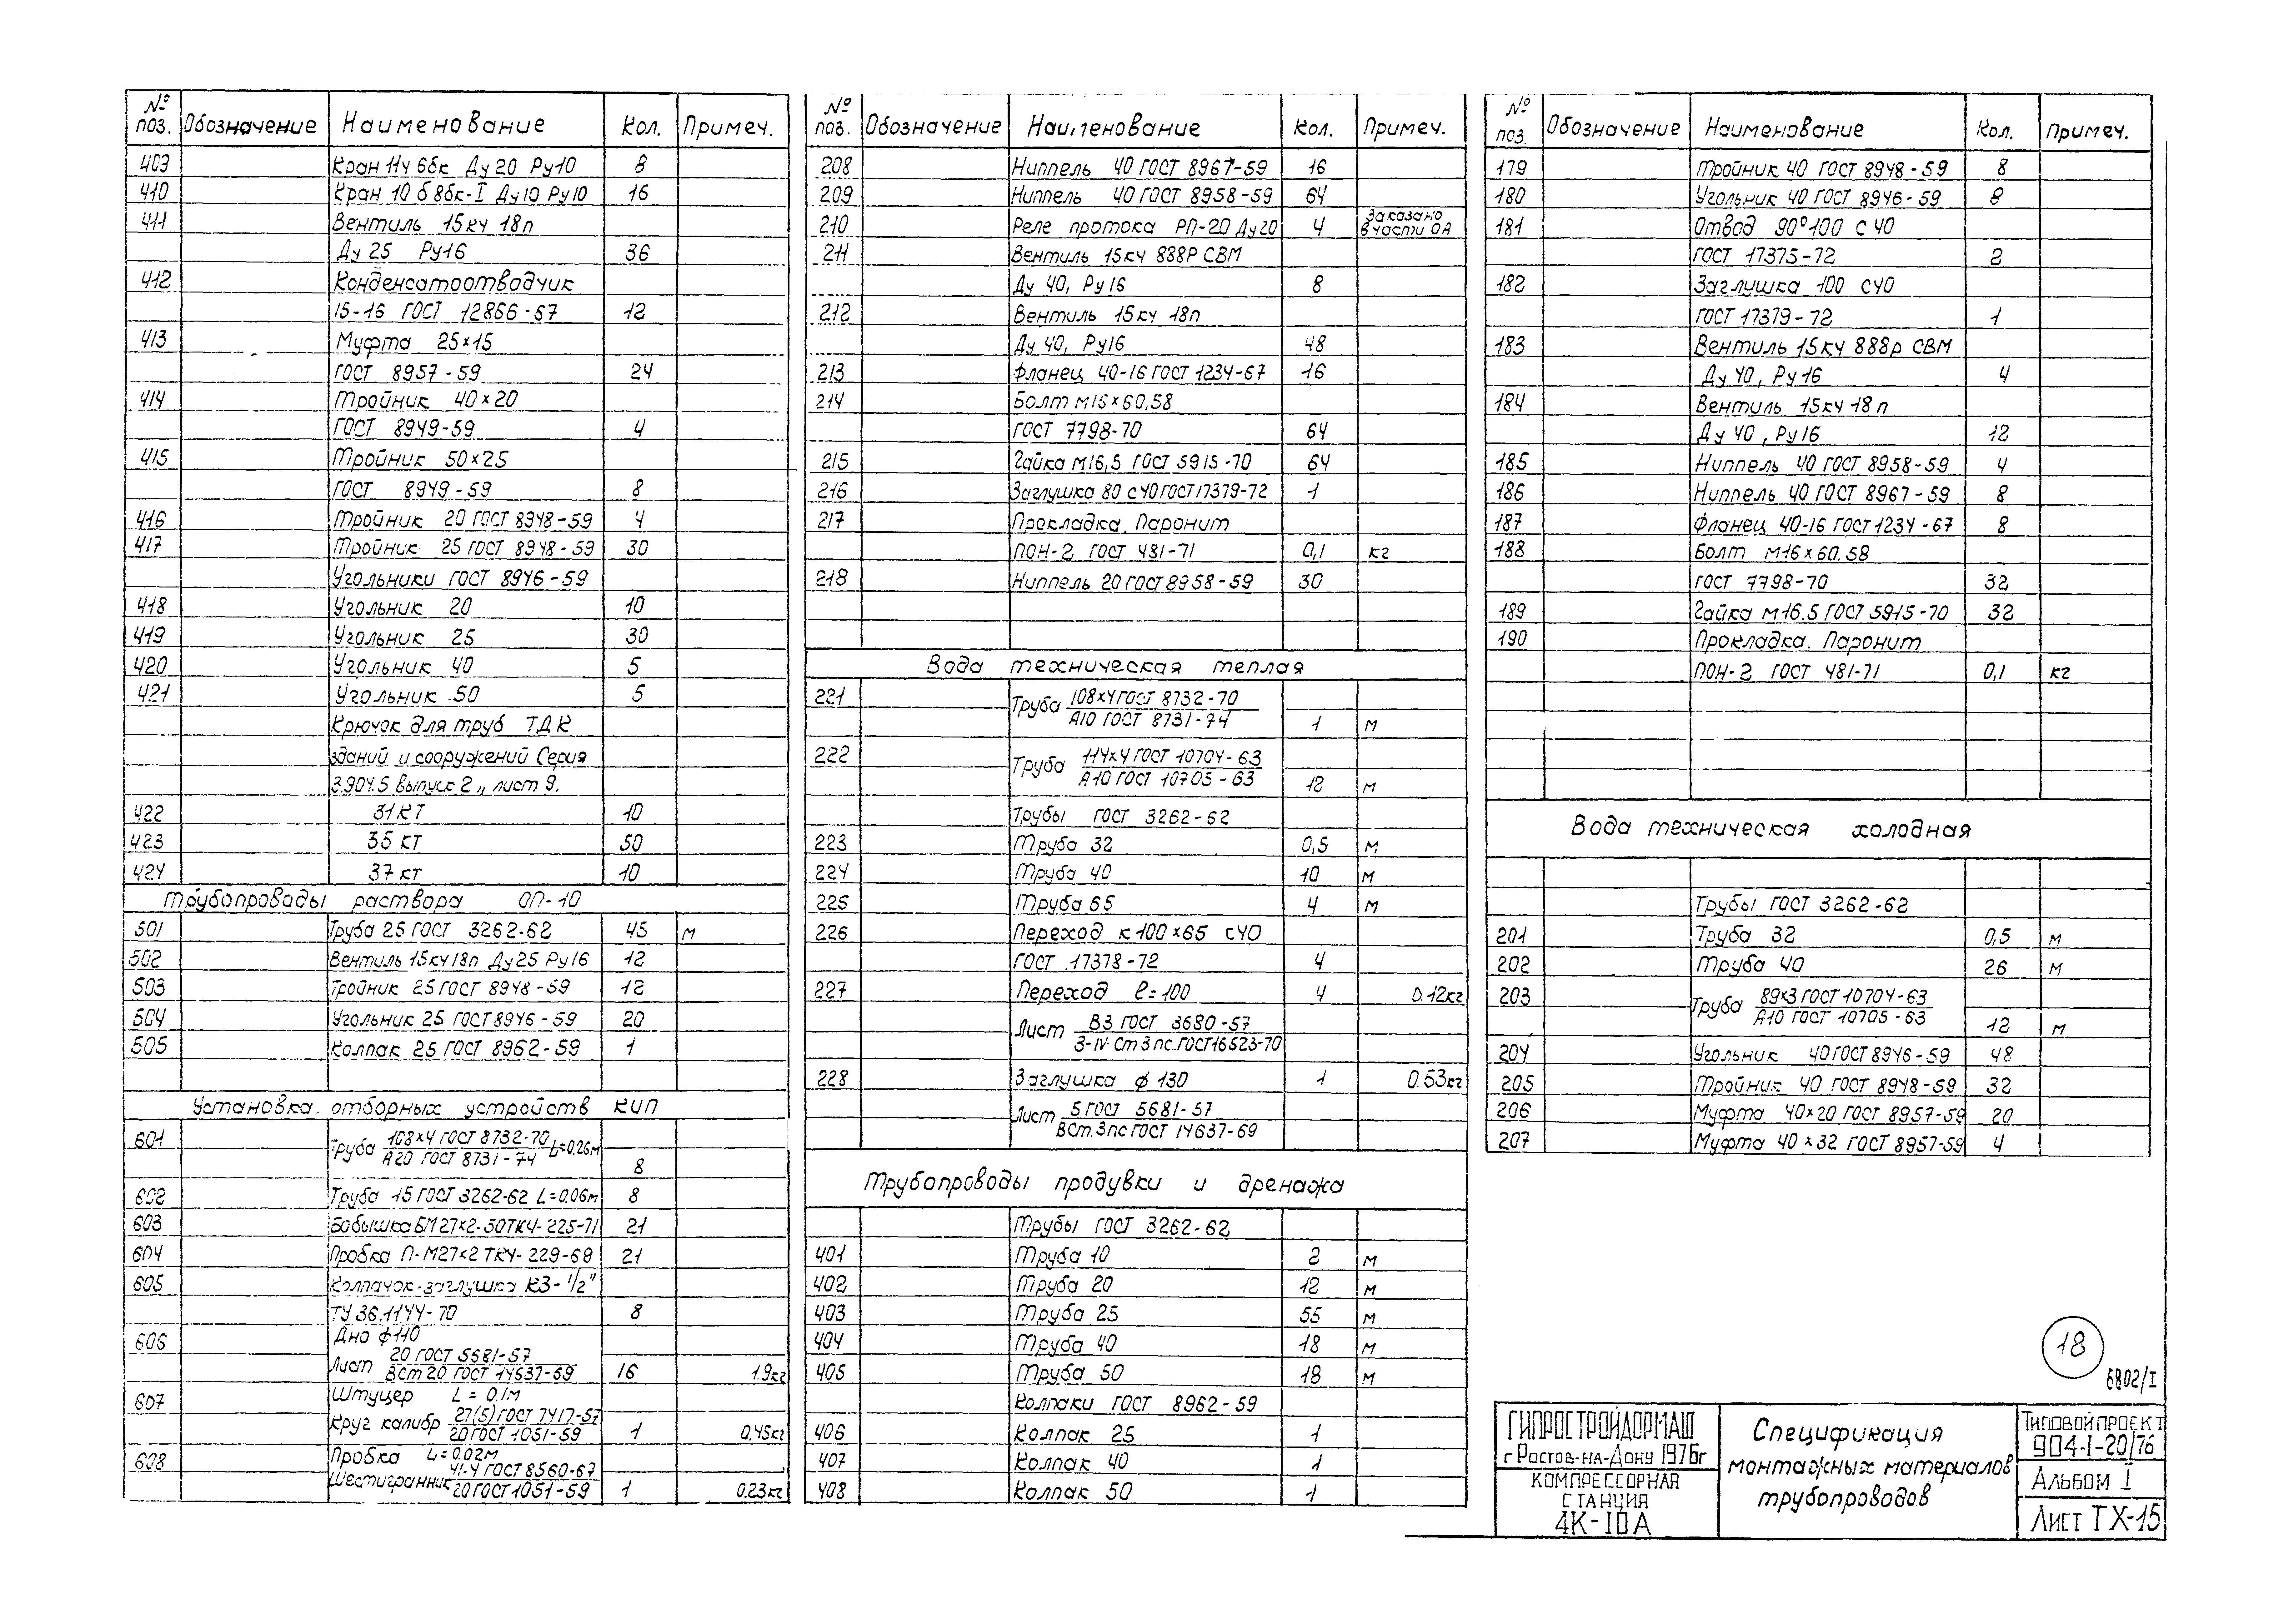 № поз. Обозначение Наименование Кол. Примеч.
403 Кран 11ч 6бк Ду 20 Ру10 8
410 Кран 10 б 8бк-I Ду10 Ру10 16
411 Вентиль 15кч 18п
Ду 25 Ру16 36
412 Конденсатоотводчик
15-16 ГОСТ 12866-67 12
413 Муфта 25×15
ГОСТ 8957-59 24
414 Тройник 40×20
ГОСТ 8949-59 4
415 Тройник 50×25
ГОСТ 8949-59 8
416 Тройник 20 ГОСТ 8948-59 4
417 Тройник 25 ГОСТ 8948-59 30
Угольники ГОСТ 8946-59
418 Угольник 20 10
419 Угольник 25 30
420 Угольник 40 5
421 Угольник 50 5
Крючок для труб ТДК
зданий и сооружений Серия
3.904.5 выпуск 2, лист 9.
422 31КТ 10
423 35 КТ 50
424 37 КТ 10
Трубопроводы раствора ОП-10
501 Труба 25 ГОСТ 3262-62 45 м
502 Вентиль 15кч18п Ду25 Ру16 12
503 Тройник 25 ГОСТ 8948-59 12
504 Угольник 25 ГОСТ 8946-59 20
505 Колпак 25 ГОСТ 8962-59 1
Установка отборных устройств КИП
601 Труба 108×4 ГОСТ 8732-70 / А20 ГОСТ 8731-74 L=0,26м
8
602 Труба 15 ГОСТ 3262-62 L=0.06м 8
603 Бобышка БМ27×2-50ТК4-225-71 21
604 Пробка П-М27×2 ТК4-229-69 21
605 Колпачок-заглушка КЗ-1/2"
ТУ 36.1144-70 8
606 Дно ф110
Лист 20 ГОСТ 5681-57 / ВСт 20 ГОСТ 14637-69 16 1.9кг
607 Штуцер L = 0.1м
Круг калибр 27(5) ГОСТ 7417-57 / 20 ГОСТ 1051-59 1 0,45кг
608 Пробка L=0.02м
Шестигранник 41-4 ГОСТ 8560-67 / 20 ГОСТ 1051-59 1 0.23кг
№ поз. Обозначение Наименование Кол. Примеч.
208 Ниппель 40 ГОСТ 8967-59 16
209 Ниппель 40 ГОСТ 8958-59 64
210 Реле протока РП-20 Ду20 4 Заказано в части ОА
211 Вентиль 15кч 888Р СВМ
Ду 40, Ру16 8
212 Вентиль 15кч 18п
Ду 40, Ру16 48
213 Фланец 40-16 ГОСТ 1234-67 16
214 Болт М16×60,58
ГОСТ 7798-70 64
215 Гайка М16,5 ГОСТ 5915-70 64
216 Заглушка 80 с40 ГОСТ 17379-72 1
217 Прокладка. Паронит
ПОН-2 ГОСТ 481-71 0,1 кг
218 Ниппель 20 ГОСТ 8958-59 30
Вода техническая теплая
221 Труба 108×4 ГОСТ 8732-70 / А10 ГОСТ 8731-74 1 м
222 Труба 114×4 ГОСТ 10704-63 / А10 ГОСТ 10705-63 12 м
Трубы ГОСТ 3262-62
223 Труба 32 0,5 м
224 Труба 40 10 м
225 Труба 65 4 м
226 Переход к 100×65 с40
ГОСТ 17378-72 4
227 Переход ℓ=100 4 0.12кг
Лист В3 ГОСТ 3680-57 / 3-IV-Ст 3 пс ГОСТ 16523-70
228 Заглушка ф 130 1 0.53кг
Лист 5 ГОСТ 5681-57 / ВСт.3пс ГОСТ 14637-69
Трубопроводы продувки и дренажа
Трубы ГОСТ 3262-62
401 Труба 10 2 м
402 Труба 20 12 м
403 Труба 25 55 м
404 Труба 40 18 м
405 Труба 50 18 м
Колпаки ГОСТ 8962-59
406 Колпак 25 1
407 Колпак 40 1
408 Колпак 50 1
№ поз. Обозначение Наименование Кол. Примеч.
179 Тройник 40 ГОСТ 8948-59 8
180 Угольник 40 ГОСТ 8946-59 8
181 Отвод 90°100 С 40
ГОСТ 17375-72 2
182 Заглушка 100 с40
ГОСТ 17379-72 1
183 Вентиль 15кч 888р СВМ
Ду 40, Ру16 4
184 Вентиль 15кч 18п
Ду 40, Ру16 12
185 Ниппель 40 ГОСТ 8958-59 4
186 Ниппель 40 ГОСТ 8967-59 8
187 Фланец 40-16 ГОСТ 1234-67 8
188 Болт М16×60.58
ГОСТ 7798-70 32
189 Гайка М16.5 ГОСТ 5915-70 32
190 Прокладка. Паронит
ПОН-2 ГОСТ 481-71 0,1 кг
Вода техническая холодная
Трубы ГОСТ 3262-62
201 Труба 32 0,5 м
202 Труба 40 26 м
203 Труба 89×3 ГОСТ 10704-63 / А10 ГОСТ 10705-63
12 м
204 Угольник 40 ГОСТ 8946-59 48
205 Тройник 40 ГОСТ 8948-59 32
206 Муфта 40×20 ГОСТ 8957-59 20
207 Муфта 40×32 ГОСТ 8957-59 4
18
6802/I
ГИПРОСТРОЙДОРМАШ
г Ростов-на-Дону 1976г
КОМПРЕССОРНАЯ
СТАНЦИЯ
4К-10А
Спецификация
монтажных материалов
трубопроводов
Типовой проект
904-1-20/76
Альбом I
Лист ТХ-15